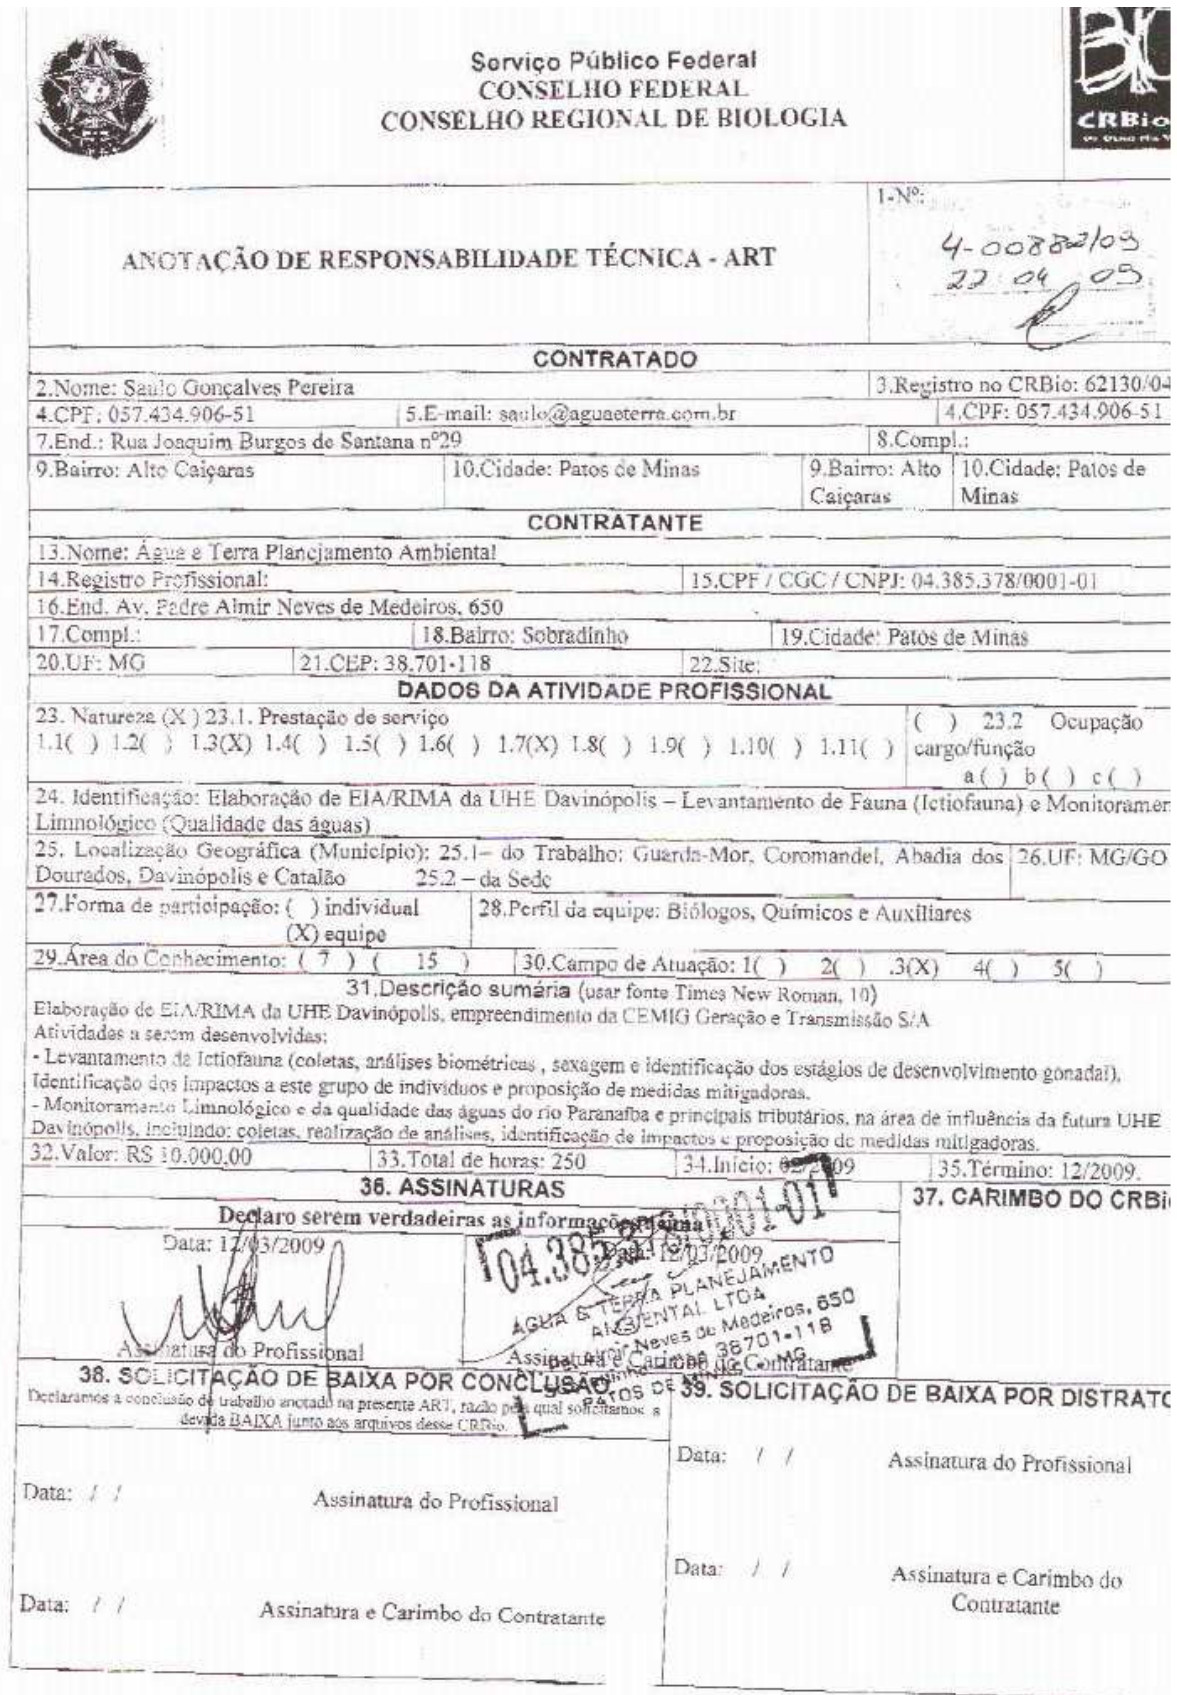 Serviço Público Federal
CONSELHO FEDERAL
CONSELHO REGIONAL DE BIOLOGIA
CRBio
1-Nº:
4-00882/09
22 04 09
ANOTAÇÃO DE RESPONSABILIDADE TÉCNICA - ART
CONTRATADO
2.Nome: Saulo Gonçalves Pereira 3.Registro no CRBio: 62130/04
4.CPF: 057.434.906-51 5.E-mail: saulo@aguaeterra.com.br 4.CPF: 057.434.906-51
7.End.: Rua Joaquim Burgos de Santana nº29 8.Compl.:
9.Bairro: Alto Caiçaras 10.Cidade: Patos de Minas 9.Bairro: Alto Caiçaras 10.Cidade: Patos de Minas
CONTRATANTE
13.Nome: Água e Terra Planejamento Ambiental
14.Registro Profissional: 15.CPF / CGC / CNPJ: 04.385.378/0001-01
16.End. Av. Padre Almir Neves de Medeiros, 650
17.Compl.: 18.Bairro: Sobradinho 19.Cidade: Patos de Minas
20.UF: MG 21.CEP: 38.701-118 22.Site:
DADOS DA ATIVIDADE PROFISSIONAL
23. Natureza (X ) 23.1. Prestação de serviço ( ) 23.2 Ocupação
1.1( ) 1.2( ) 1.3(X) 1.4( ) 1.5( ) 1.6( ) 1.7(X) 1.8( ) 1.9( ) 1.10( ) 1.11( ) cargo/função
a ( ) b ( ) c ( )
24. Identificação: Elaboração de EIA/RIMA da UHE Davinópolis – Levantamento de Fauna (Ictiofauna) e Monitoramen
Limnológico (Qualidade das águas)
25. Localização Geográfica (Município): 25.1– do Trabalho: Guarda-Mor, Coromandel, Abadia dos 26.UF: MG/GO
Dourados, Davinópolis e Catalão 25.2 – da Sede
27.Forma de participação: ( ) individual 28.Perfil da equipe: Biólogos, Químicos e Auxiliares
(X) equipe
29.Área do Conhecimento: ( 7 ) ( 15 ) 30.Campo de Atuação: 1( ) 2( ) .3(X) 4( ) 5( )
31.Descrição sumária (usar fonte Times New Roman, 10)
Elaboração de EIA/RIMA da UHE Davinópolis, empreendimento da CEMIG Geração e Transmissão S/A
Atividades a serem desenvolvidas:
- Levantamento da Ictiofauna (coletas, análises biométricas , sexagem e identificação dos estágios de desenvolvimento gonadal),
Identificação dos impactos a este grupo de indivíduos e proposição de medidas mitigadoras.
- Monitoramento Limnológico e da qualidade das águas do rio Paranaíba e principais tributários, na área de influência da futura UHE
Davinópolis, incluindo: coletas, realização de análises, identificação de impactos e proposição de medidas mitigadoras.
32.Valor: R$ 10.000,00 33.Total de horas: 250 34.Início: 02/2009 35.Término: 12/2009.
36. ASSINATURAS 37. CARIMBO DO CRBi
Declaro serem verdadeiras as informações acima
Data: 12/03/2009 Data: 12/03/2009
04.385.378/0001-01
AGUA & TERRA PLANEJAMENTO
AMBIENTAL LTDA
Almir Neves de Medeiros, 650
38701-118
PATOS DE MINAS - MG
Assinatura do Profissional Assinatura e Carimbo do Contratante
38. SOLICITAÇÃO DE BAIXA POR CONCLUSÃO 39. SOLICITAÇÃO DE BAIXA POR DISTRATO
Declaramos a conclusão do trabalho anotado na presente ART, razão pela qual solicitamos a
devida BAIXA junto aos arquivos desse CRBio.
Data: / / Assinatura do Profissional
Data: / / Assinatura do Profissional
Data: / / Assinatura e Carimbo do
Contratante
Data: / / Assinatura e Carimbo do Contratante